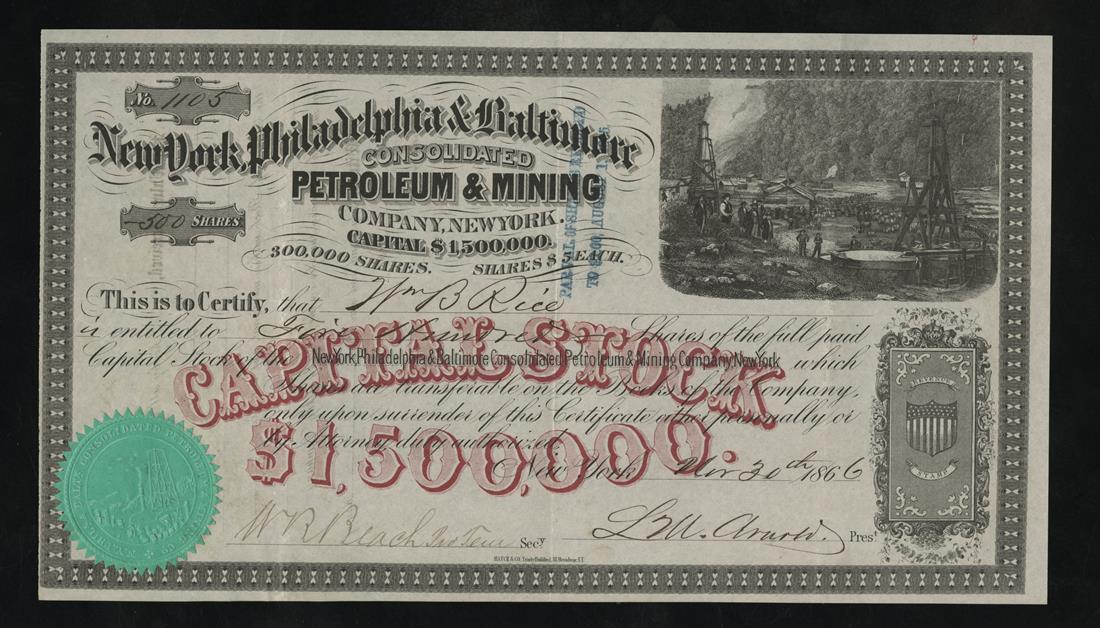 No. 1105
New York, Philadelphia & Baltimore
CONSOLIDATED
PETROLEUM & MINING
500 SHARES
COMPANY, NEW YORK.
CAPITAL $1,500,000.
300,000 SHARES. SHARES $5 EACH.
This is to Certify, that Wm B Rice
is entitled to Five Hundred Shares of the full paid
Capital Stock of the New York, Philadelphia & Baltimore Consolidated Petroleum & Mining Company, New York which
Shares are transferable on the Books of the Company,
only upon surrender of this Certificate either personally or
by Attorney duly authorized.
CAPITAL STOCK
$1,500,000.
New York Nov 30th 1866
W R Beach Secy
L M. Arnold. Prest
REVENUE
STAMP
PAR VAL OF SHS
HATCH & CO. Trinity Building, 111 Broadway, N.Y.